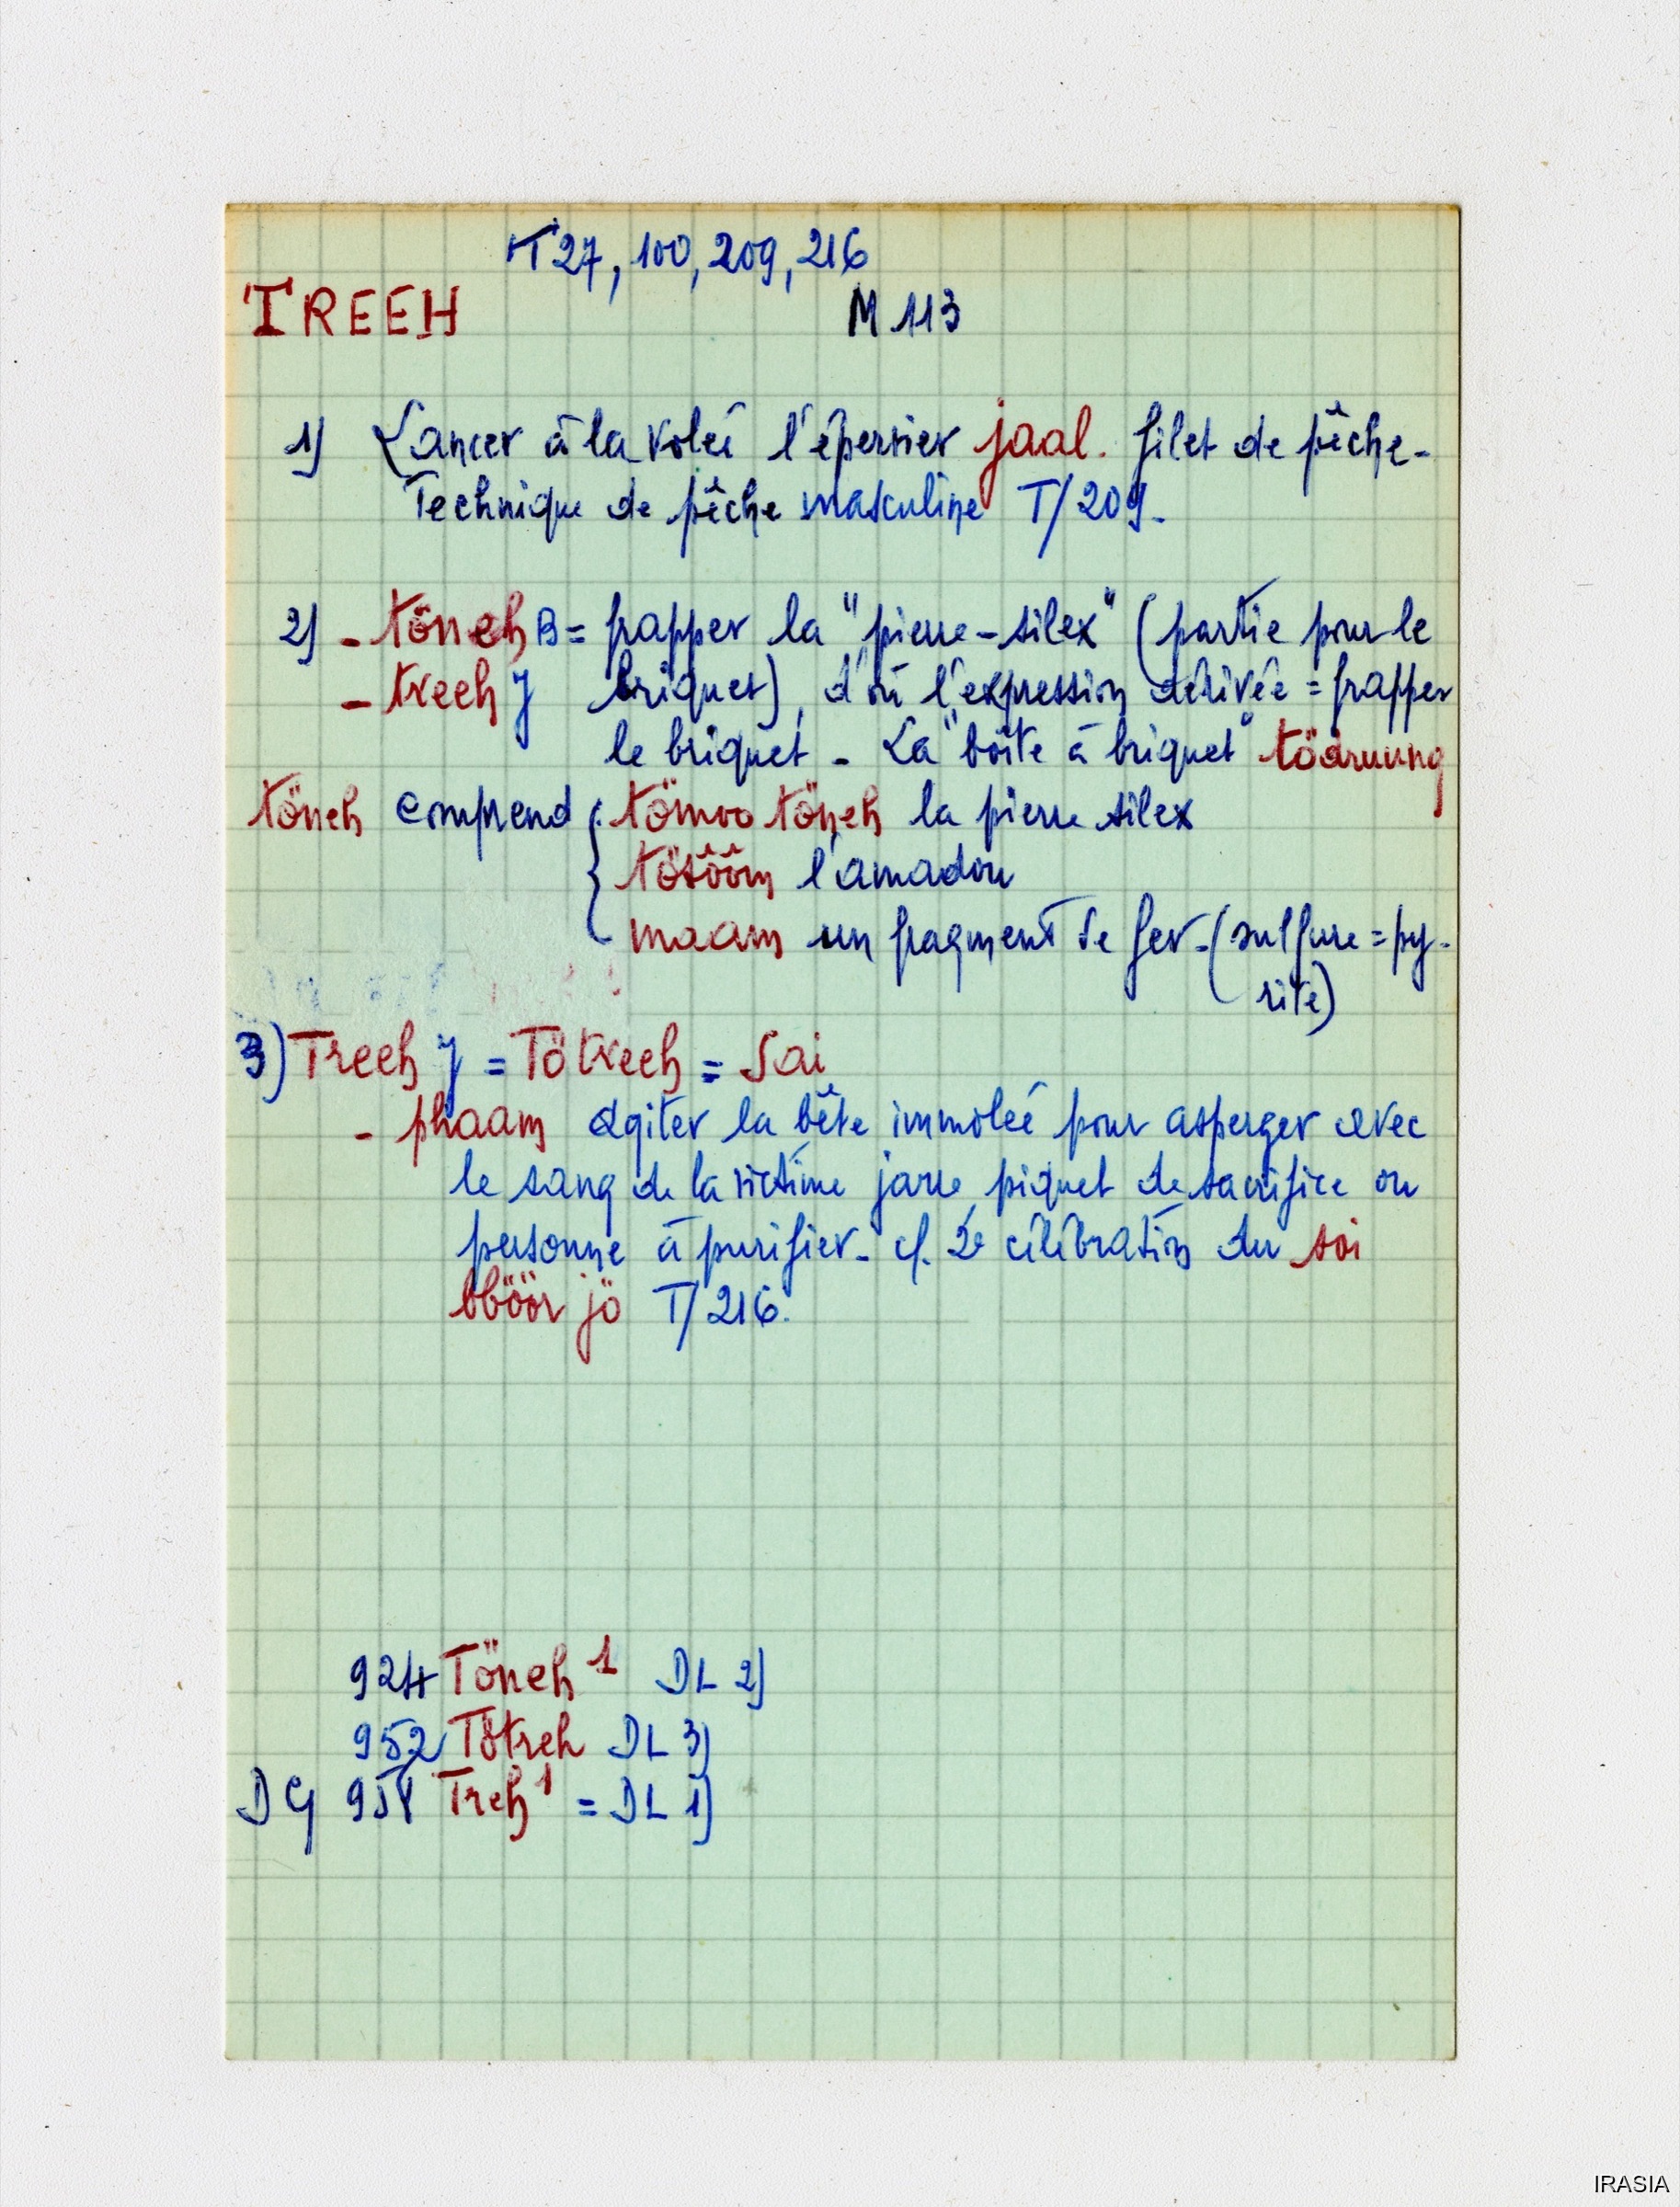 T 27, 100, 209, 216
TREEH M 113
1) Lancer à la volée l'épervier jaal. filet de pêche-
Technique de pêche masculine T/209-
2) - töneh B = frapper la "pierre-silex" (partie pour le
- treeh J briquet), d'où l'expression dérivée = frapper
le briquet - La "boîte à briquet"
töneh comprend { tömoo töneh la pierre silex
tösôôm l'amadou
maam un fragment de fer - (sulfure = py-
rite)
3) Treeh J = Tötreeh = Sai
- phaam agiter la bête immolée pour asperger avec
le sang de la victime jarre, piquet de sacrifice ou
personne à purifier - cf. 2e célébration du soi
bböör jö T/216.
924 Töneh 1 DL 2)
952 Tötreh DL 3)
Treh 1 = DL 1)
IRASIA